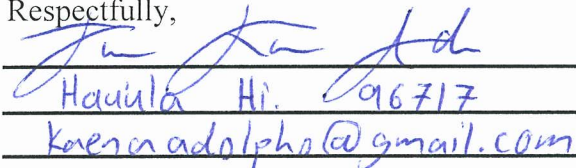 Respectfully,
Hauula Hi. 96717
kaenaadolpho@gmail.com